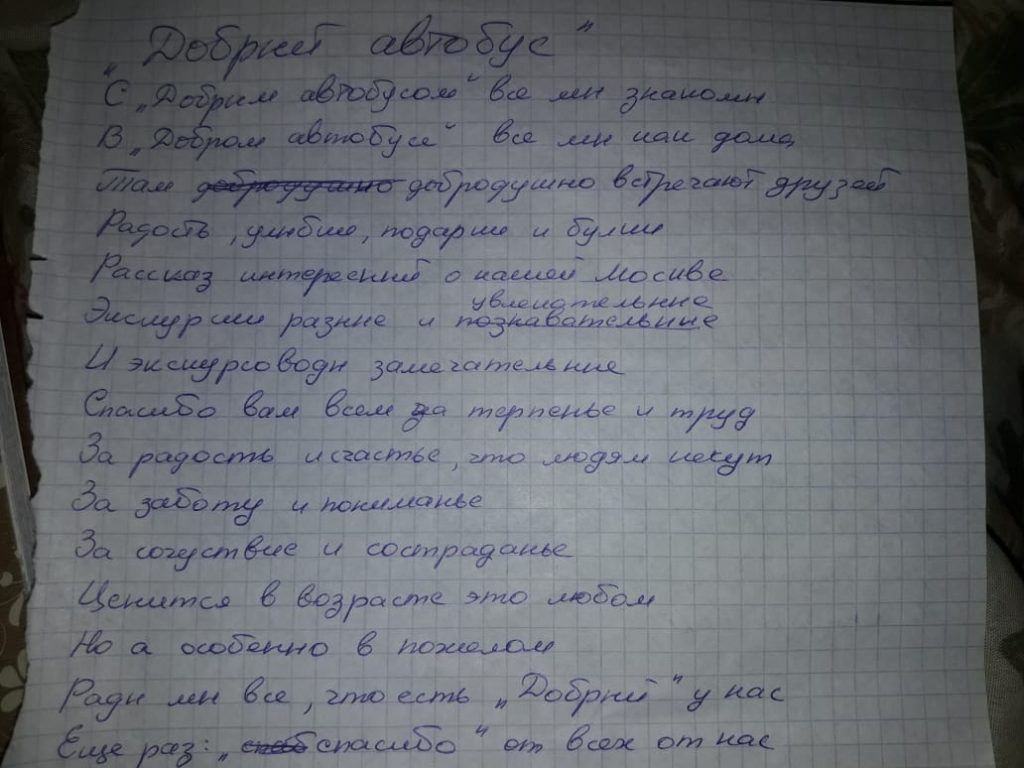 „Добрый автобус"
С „Добрым автобусом" все мы знакомы
В „Добром автобусе" все мы как дома,
Там добродушно добродушно встречают друзей
Радость, улыбки, подарки и булки
Рассказ интересный о нашей Москве
увлекательные
Экскурсии разные и познавательные
И экскурсоводы замечательные
Спасибо вам всем за терпенье и труд
За радость и счастье, что людям несут
За заботу и пониманье
За сочуствие и состраданье
Ценится в возрасте это любом
Но а особенно в пожилом
Рады мы все, что есть „Добрый" у нас
Еще раз: „спасибо" от всех от нас